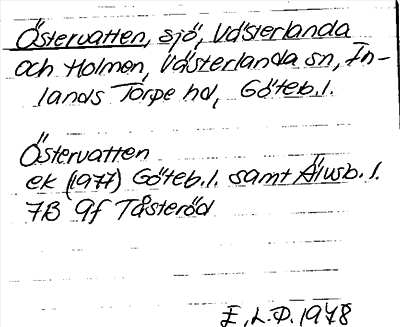 Östervatten, sjö, Västerlanda
och Holmen, Västerlanda sn, In-
lands Torpe hd, Göteb.l.
Östervatten
ek (1977) Göteb.l. samt Älvsb.l.
7B 9f Tåsteröd
E.L.P. 1978